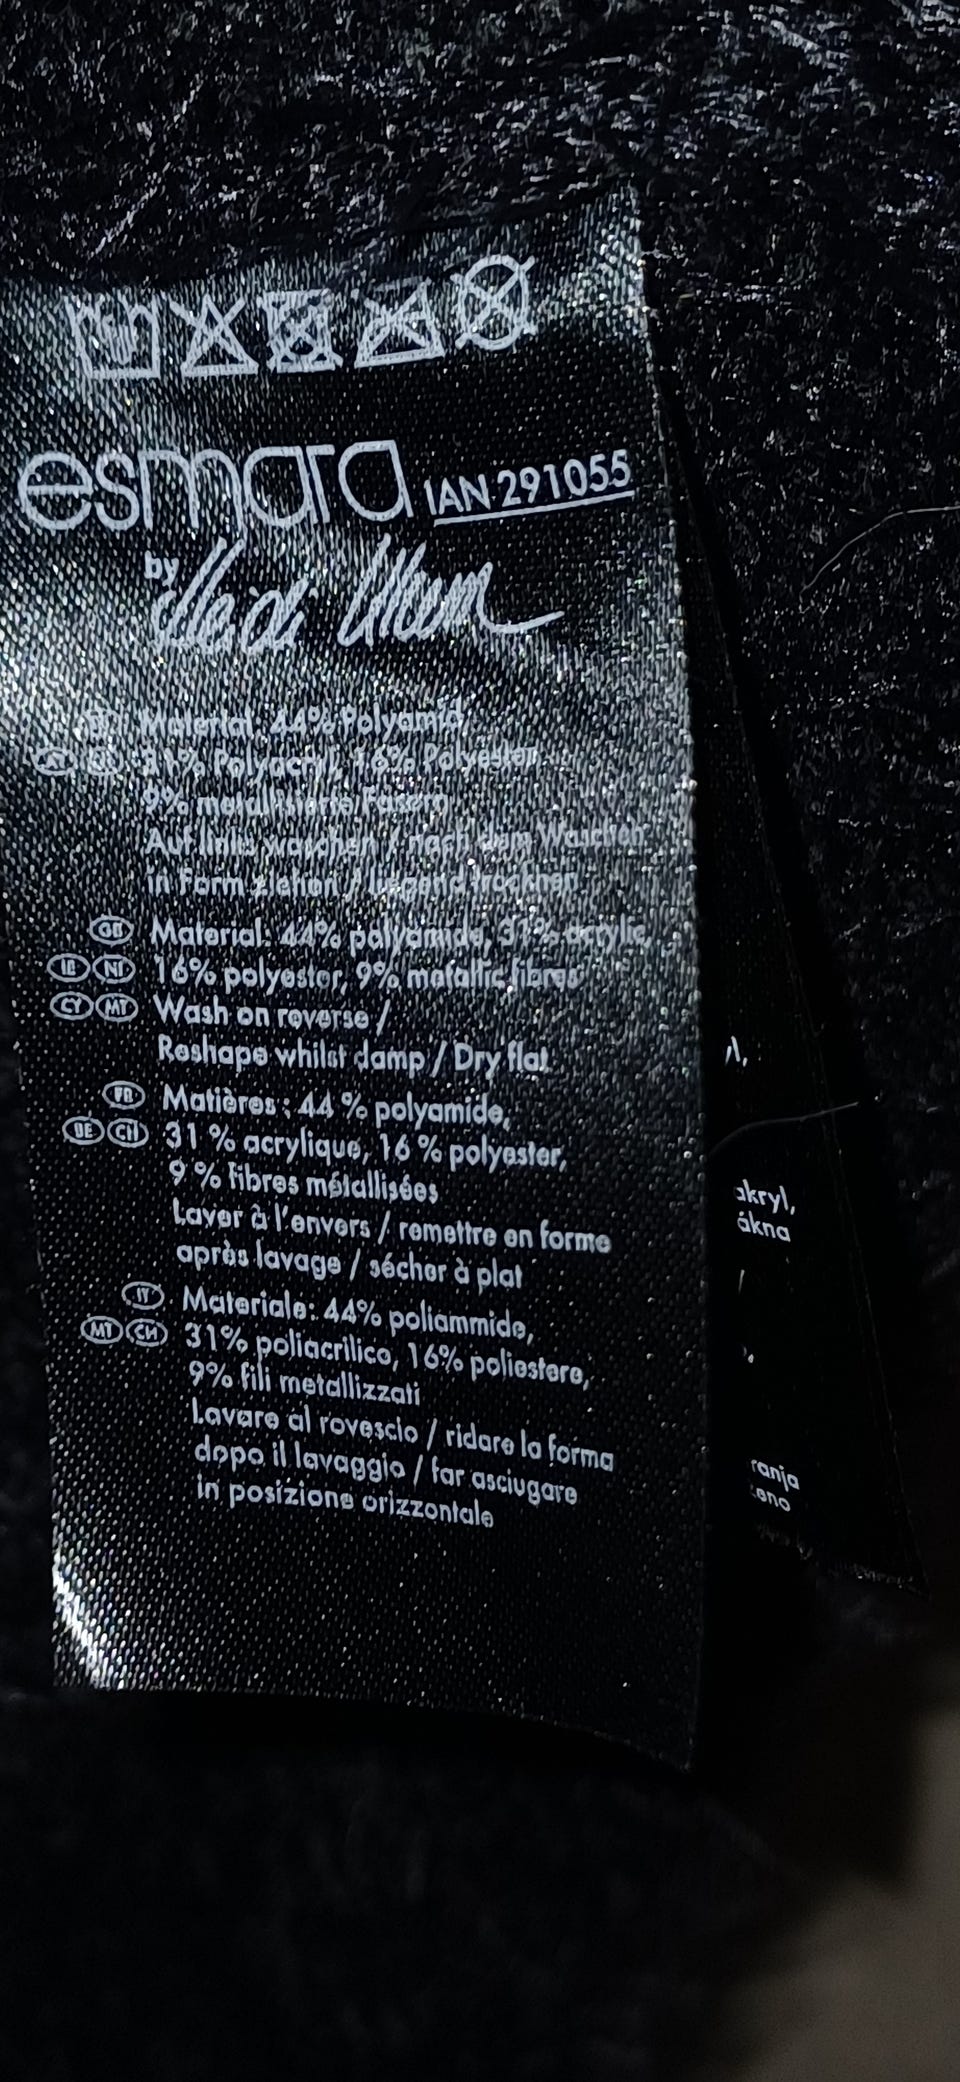 esmara IAN 291055
by Heidi Klum
Material: 44% Polyamid,
31% Polyacryl, 16% Polyester,
9% metallisierte Fasern
Auf links waschen / nach dem Waschen
in Form ziehen / liegend trocknen
GB Material: 44% polyamide, 31% acrylic,
IE NI 16% polyester, 9% metallic fibres
CY MT Wash on reverse /
Reshape whilst damp / Dry flat
FR Matières : 44 % polyamide,
BE CH 31 % acrylique, 16 % polyester,
9 % fibres métallisées
Laver à l'envers / remettre en forme
après lavage / sécher à plat
IT Materiale: 44% poliammide,
MT CH 31% poliacrilico, 16% poliestere,
9% fili metallizzati
Lavare al rovescio / ridare la forma
dopo il lavaggio / far asciugare
in posizione orizzontale
akryl,